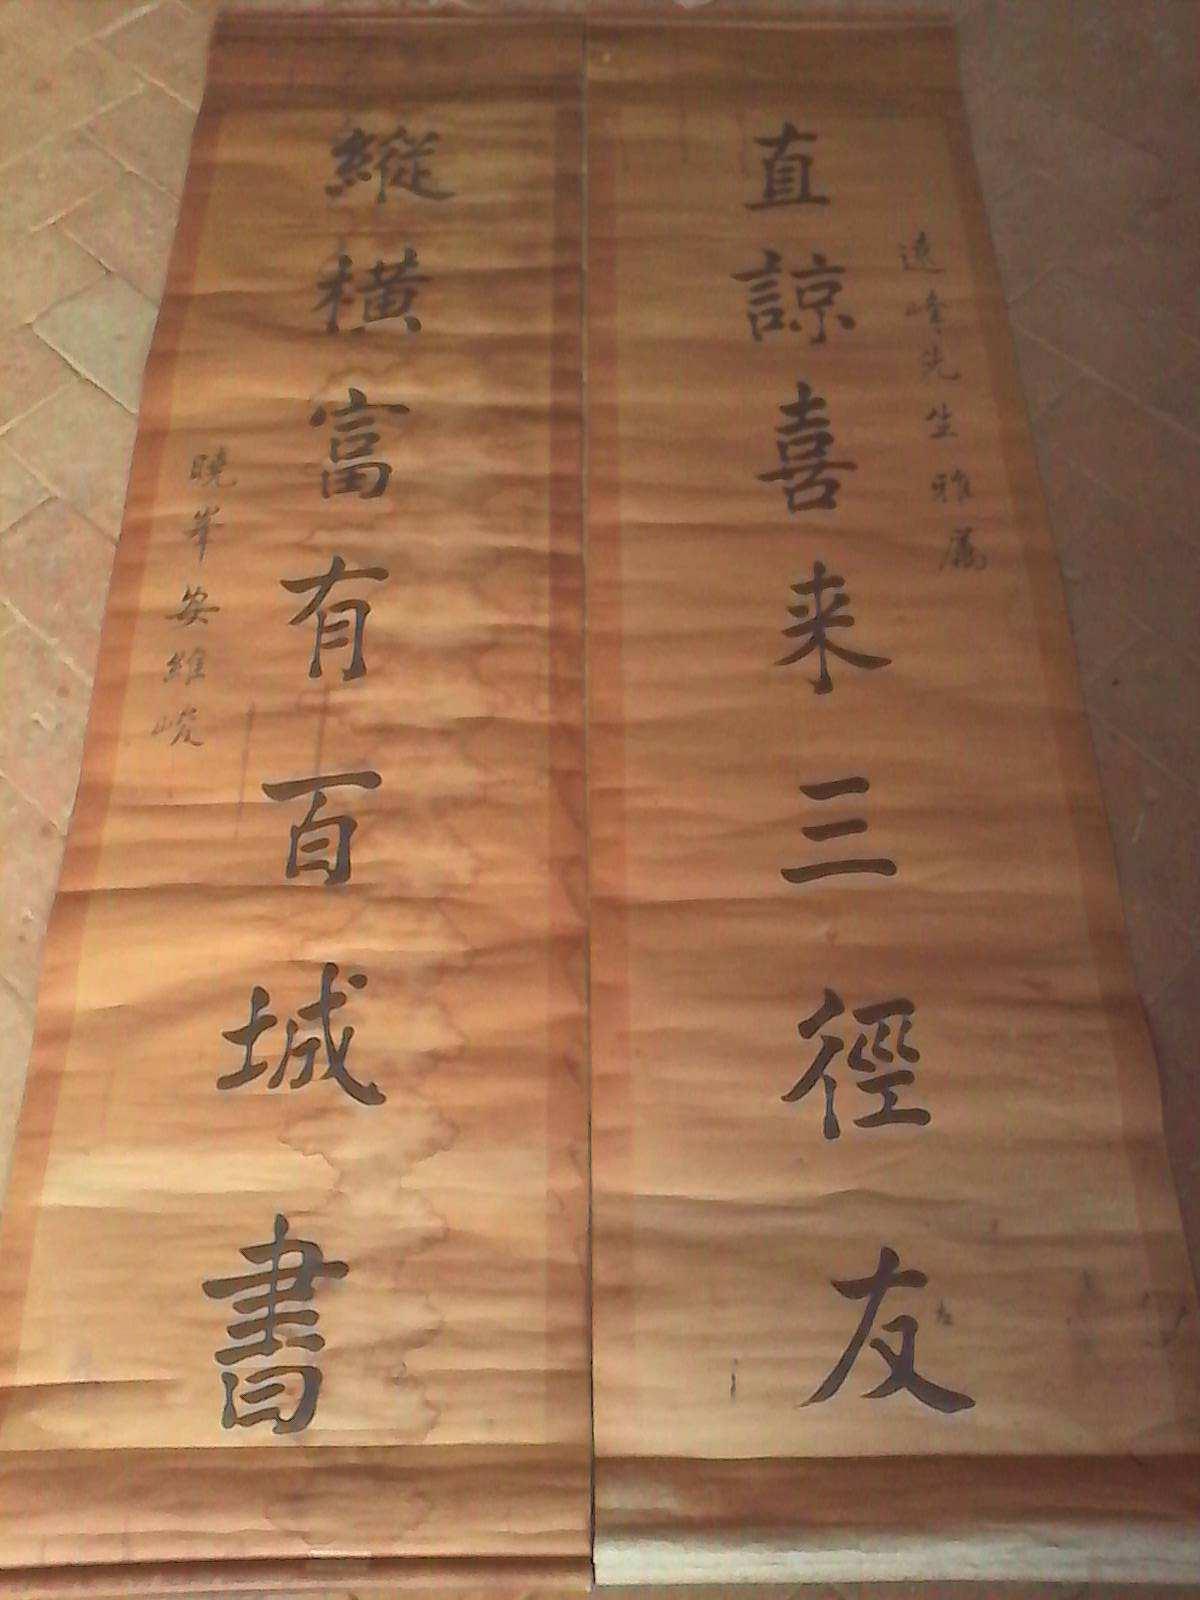 遠峰先生雅属
直諒喜来三徑友
縱橫富有百城書
曉峯安維峻